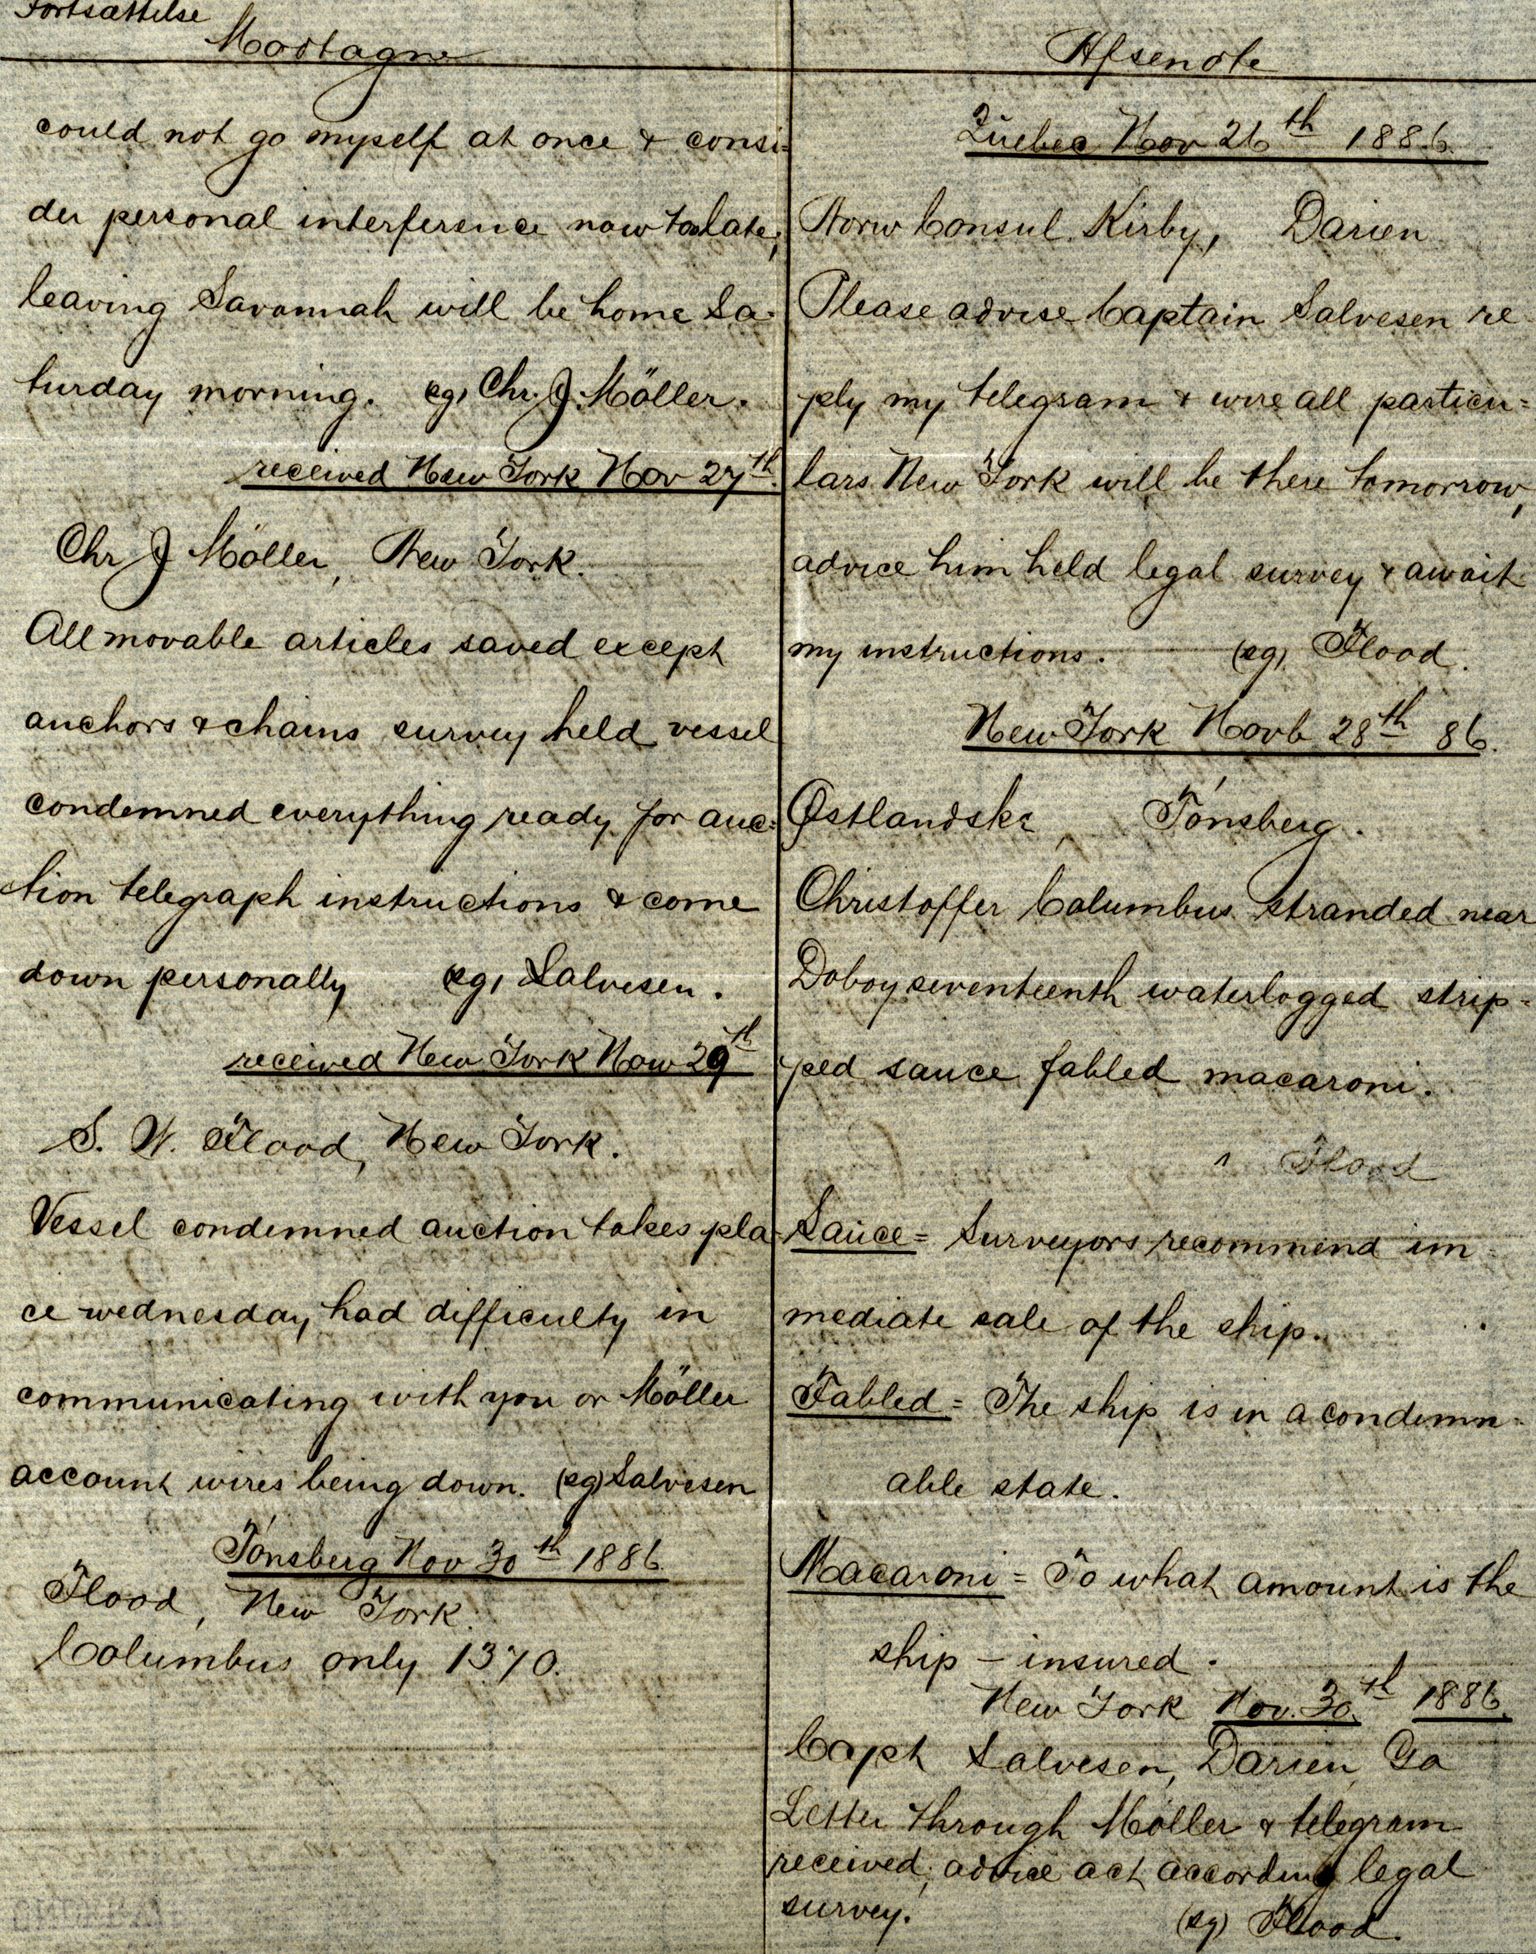 Fortsættelse
Modtagne
could not go myself at once & consi=
der personal interference now too late,
leaving Savannah will be home Sa-
turday morning. (sg) Chr. J. Möller.
received New York Nov 27th.
Chr J Möller, New York.
All movable articles saved except
anchors & chains survey held vessel
condemned everything ready for auc=
tion telegraph instructions & come
down personally (sg) Salvesen.
received New York Now 29th
S. W. Flood, New York.
Vessel condemned auction takes pla-
ce wednesday, had difficulty in
communicating with you or Möller
account wires being down. (sg) Salvesen
Tönsberg Nov 30th 1886
Flood, New York.
Columbus only 1370.
Afsendte
Quebec Nov 26th 1886.
Norw Consul Kirby, Darien
Please advise Captain Salvesen re-
ply my telegram & wire all particu=
lars New York will be there tomorrow,
advice him held legal survey & await
my instructions. (sg) Flood.
New York Novb 28th 86.
Østlandske, Tónsberg.
Christoffer Columbus stranded near
Doboy seventeenth waterlogged strip-
ped sauce fabled macaroni.
Flood
Sauce = Surveyors recommend im-
mediate sale of the ship.
Fabled = The ship is in a condemn-
able state.
Macaroni = To what amount is the
ship – insured.
New York Nov. 30.th 1886.
Capt Salvesen, Darien, Ga
Letter through Möller & telegram
received, advice act according legal
survey. (sg) Flood.